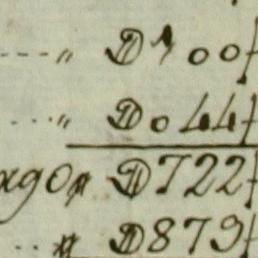 " D 1 00f
" D 0 44f
xgo D 722f
D 879f